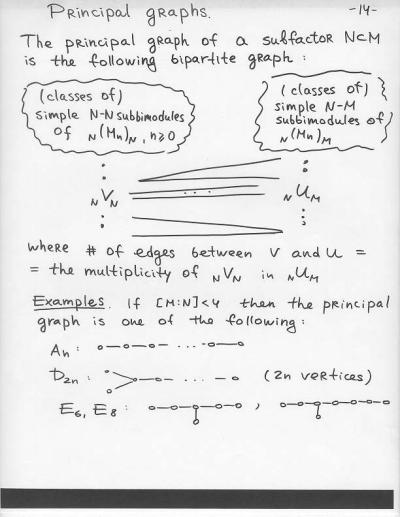 Principal graphs. -14-
The principal graph of a subfactor N⊂M
is the following bipartite graph:
(classes of)
simple N-N subbimodules
of N(Mn)N, n≥0
(classes of)
simple N-M
subbimodules of
N(Mn)M
NVN ... NUM
where # of edges between V and U =
= the multiplicity of NVN in NUM
Examples. If [M:N]<4 then the principal
graph is one of the following:
An: ...
D2n: ... (2n vertices)
E6, E8: ,